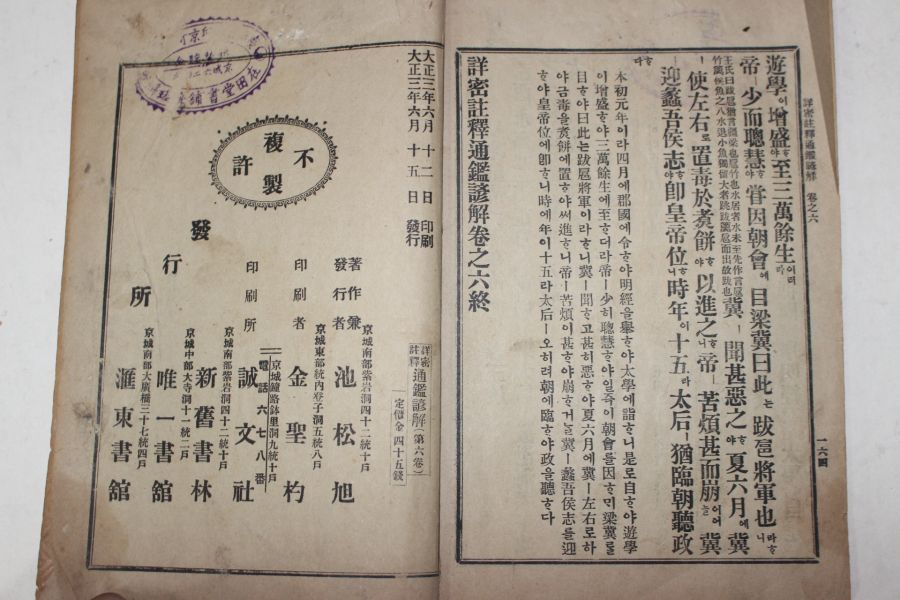 遊學이增盛ᄒᆞ야至三萬餘生이러라
帝ㅣ少而聰慧ᄒᆞ야甞因朝會에目梁冀曰此는跋扈將軍也ㅣ라ᄒᆞ니
冀ㅣ聞甚惡之ᄒᆞ야夏六月에冀
ㅣ使左右로置毒於煑餠ᄒᆞ야以進之ᄒᆞ니帝ㅣ苦煩甚而崩이어ᄂᆞᆯ冀
ㅣ迎蠡吾侯志ᄒᆞ야卽皇帝位ᄒᆞ니時年이十五라太后ㅣ猶臨朝聽政
ᄒᆞ다
本初元年이라四月에郡國에令ᄒᆞ야明經을擧ᄒᆞ야太學에詣ᄒᆞ니是로自ᄒᆞ야遊學
이增盛ᄒᆞ야三萬餘生에至ᄒᆞ더라帝ㅣ少ᄒᆞ되聰慧ᄒᆞ야일즉이朝會를因ᄒᆞ야梁冀를
目ᄒᆞ야曰此는跋扈將軍이라ᄒᆞ니冀ㅣ聞ᄒᆞ고甚히惡ᄒᆞ야夏六月에冀ㅣ左右로하
야금毒을煑餠에置ᄒᆞ야써進ᄒᆞ니帝ㅣ苦煩이甚ᄒᆞ야崩ᄒᆞ거늘冀ㅣ蠡吾侯志를迎
ᄒᆞ야皇帝位에卽ᄒᆞ니時에年이十五라太后ㅣ오히려朝에臨ᄒᆞ야政을聽ᄒᆞ다
詳密註釋通鑑諺解卷之六終
詳密註釋通鑑諺解 卷之六
一六四
大正三年六月十二日 印刷
大正三年六月十五日 發行
不許複製
詳密註釋 通鑑諺解(第六卷)
定價金四十五錢
京城南部紫岩洞四十二統十戶
著作兼發行者 池松旭
京城東部統內卷子洞五統八戶
印刷者 金聖杓
京城鐘路鉢里洞九統十戶
電話六七八番
印刷所 誠文社
發行所
京城南部紫岩洞四十二統十戶
新舊書林
京城中部大寺洞十一統二戶
唯一書舘
京城南部大廣橋三十七統四戶
滙東書舘